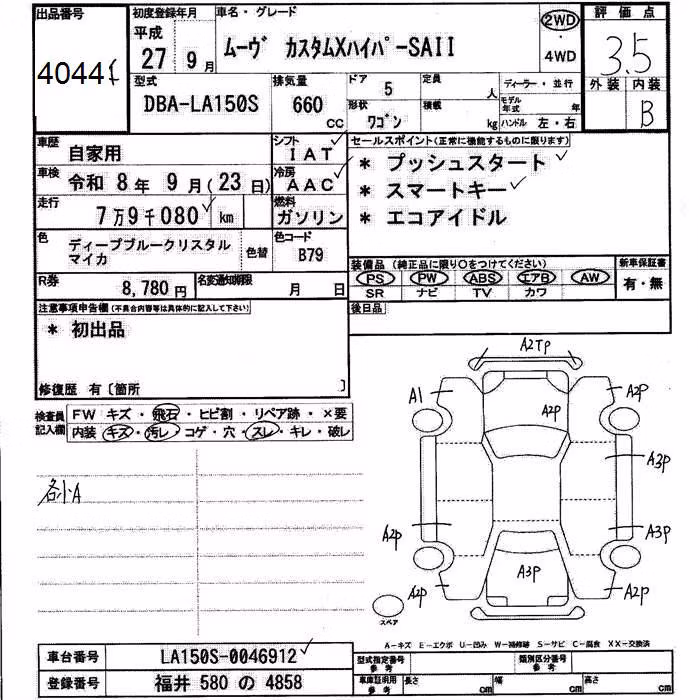 出品番号
4044
初度登録年月
平成
27 9月
車名・グレード
ムーヴ カスタムXハイパーSAII
2WD
・
4WD
評価点
3.5
外装 内装
B
型式
DBA-LA150S
排気量
660
CC
ドア
5
形状
ワゴン
定員
人
積載
kg
ディーラー・並行
モデル年式
年
ハンドル 左・右
車歴
自家用
シフト
IAT
車検
令和 8年 9月(23日)
冷房
AAC
走行
7万9千080 km
燃料
ガソリン
色
ディープブルークリスタル
マイカ
色替
色コード
B79
R券
8,780円
名変通知期限
月 日
セールスポイント(正常に機能するものに限ります)
* プッシュスタート
* スマートキー
* エコアイドル
装備品(純正品に限り○をつけてください)
PS PW ABS エアB AW
SR ナビ TV カワ
新車保証書
有・無
後日品
注意事項申告欄(不具合内容等は具体的に記入して下さい)
* 初出品
修復歴 有〔箇所 〕
検査員
記入欄
FW キズ・飛石・ヒビ割・リペア跡・×要
内装 キズ・汚レ・コゲ・穴・スレ・キレ・破レ
各小A
A2Tp
A1
A2p
A2p
A3p
A2p
A3p
A3p
A2p
A2p
スペア
A-キズ E-エクボ U-凹み W-補修跡 S-サビ C-腐食 XX-交換済
車台番号
LA150S-0046912
登録番号
福井 580 の 4858
型式指定番号
参考
類別区分番号
参考
車庫証明用
参考
長さ
cm
幅
cm
高さ
cm